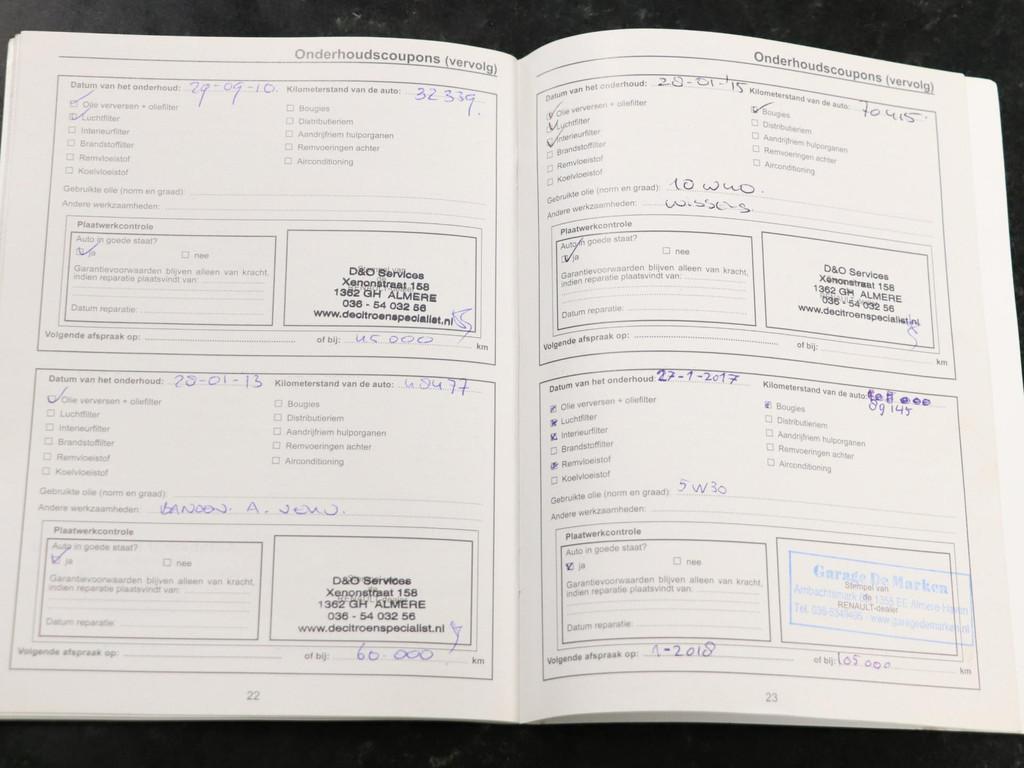 Onderhoudscoupons (vervolg)
Datum van het onderhoud: 29-09-10. Kilometerstand van de auto: 32339.
Olie verversen + oliefilter
Luchtfilter
Interieurfilter
Brandstoffilter
Remvloeistof
Koelvloeistof
Bougies
Distributieriem
Aandrijfriem hulporganen
Remvoeringen achter
Airconditioning
Gebruikte olie (norm en graad):
Andere werkzaamheden:
Plaatwerkcontrole
Auto in goede staat?
ja nee
Garantievoorwaarden blijven alleen van kracht,
indien reparatie plaatsvindt van:
Datum reparatie:
D&O Services
Xenonstraat 158
1362 GH ALMERE
036 - 54 032 56
www.decitroenspecialist.nl
Volgende afspraak op: of bij: 45000 km
Datum van het onderhoud: 28-01-13 Kilometerstand van de auto: 48477
Olie verversen + oliefilter
Luchtfilter
Interieurfilter
Brandstoffilter
Remvloeistof
Koelvloeistof
Bougies
Distributieriem
Aandrijfriem hulporganen
Remvoeringen achter
Airconditioning
Gebruikte olie (norm en graad):
Andere werkzaamheden: BANDEN. A.
Plaatwerkcontrole
Auto in goede staat?
ja nee
Garantievoorwaarden blijven alleen van kracht,
indien reparatie plaatsvindt van:
Datum reparatie:
D&O Services
Xenonstraat 158
1362 GH ALMERE
036 - 54 032 56
www.decitroenspecialist.nl
Volgende afspraak op: of bij: 60.000 km
22
Onderhoudscoupons (vervolg)
Datum van het onderhoud: 28-01-'15 Kilometerstand van de auto: 70415.
Olie verversen + oliefilter
Luchtfilter
Interieurfilter
Brandstoffilter
Remvloeistof
Koelvloeistof
Bougies
Distributieriem
Aandrijfriem hulporganen
Remvoeringen achter
Airconditioning
Gebruikte olie (norm en graad): 10W40.
Andere werkzaamheden: wissers
Plaatwerkcontrole
Auto in goede staat?
ja nee
Garantievoorwaarden blijven alleen van kracht,
indien reparatie plaatsvindt van:
Datum reparatie:
D&O Services
Xenonstraat 158
1362 GH ALMERE
036 - 54 032 56
www.decitroenspecialist.nl
Volgende afspraak op: of bij: km
Datum van het onderhoud: 27-1-2017 Kilometerstand van de auto:
89145
Olie verversen + oliefilter
Luchtfilter
Interieurfilter
Brandstoffilter
Remvloeistof
Koelvloeistof
Bougies
Distributieriem
Aandrijfriem hulporganen
Remvoeringen achter
Airconditioning
Gebruikte olie (norm en graad): 5W30
Andere werkzaamheden:
Plaatwerkcontrole
Auto in goede staat?
ja nee
Garantievoorwaarden blijven alleen van kracht,
indien reparatie plaatsvindt van:
Datum reparatie:
Garage De Marken
Stempel van
de
RENAULT-dealer
Ambachtsmark 1355 EE Almere-Haven
Tel. 036-5349495 - www.garagedemarken.nl
Volgende afspraak op: 1-2018 of bij: 105000 km
23